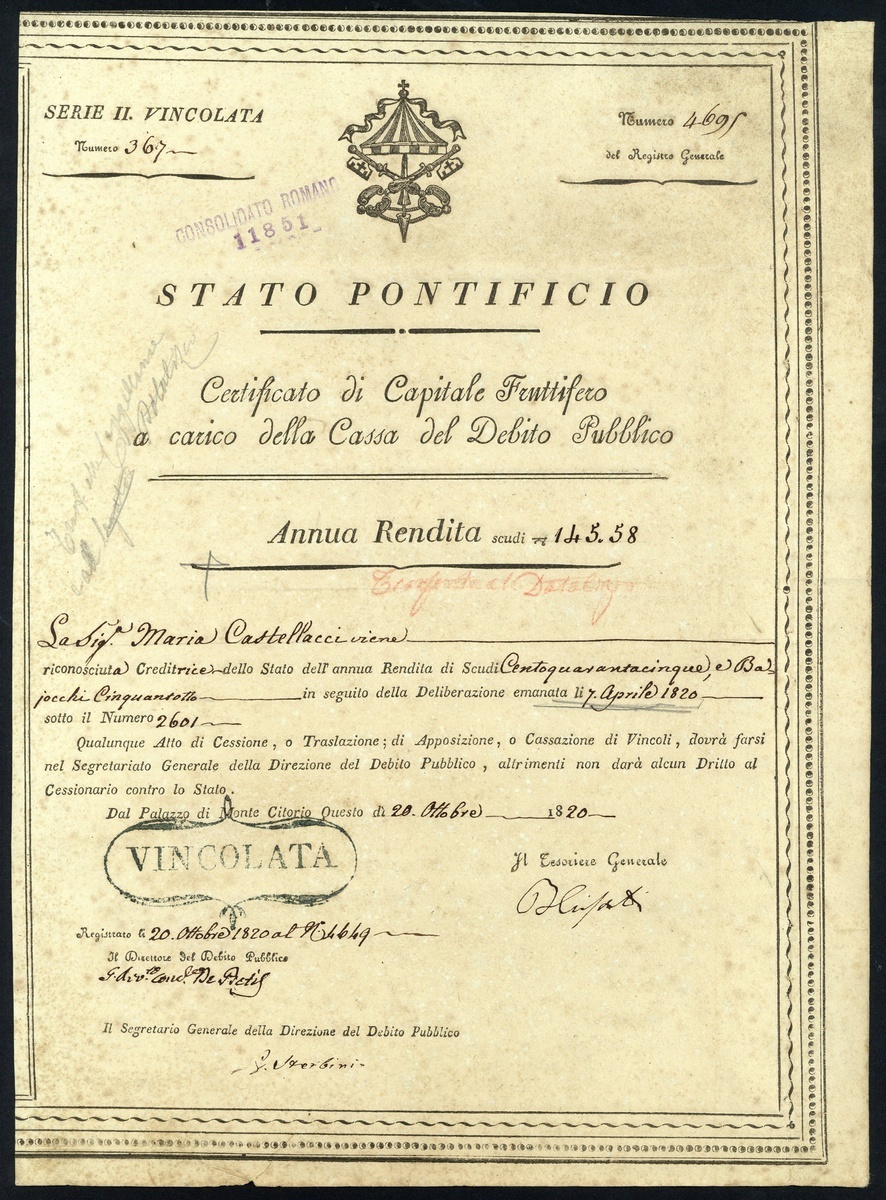 SERIE II. VINCOLATA
Numero 367
Numero 4695
del Registro Generale
CONSOLIDATO ROMANO
11851
STATO PONTIFICIO
Certificato di Capitale Fruttifero
a carico della Cassa del Debito Pubblico
Annua Rendita scudi 145.58
La Sig.ra Maria Castellacci viene
riconosciuta Creditrice dello Stato dell'annua Rendita di Scudi Centoquarantacinque, e Ba-
jocchi Cinquantotto in seguito della Deliberazione emanata li 7. Aprile 1820
sotto il Numero 2601
Qualunque Atto di Cessione, o Traslazione; di Apposizione, o Cassazione di Vincoli, dovrà farsi
nel Segretariato Generale della Direzione del Debito Pubblico, altrimenti non darà alcun Dritto al
Cessionario contro lo Stato.
Dal Palazzo di Monte Citorio Questo dì 20. Ottobre 1820
VINCOLATA
Il Tesoriere Generale
Registrato li 20. Ottobre 1820 al N. 4649
Il Direttore del Debito Pubblico
Il Segretario Generale della Direzione del Debito Pubblico
Sterbini